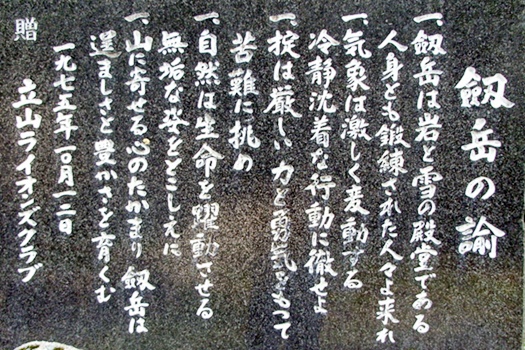 劔岳の諭
一、劔岳は岩と雪の殿堂である
人身とも鍛練された人々よ来れ
一、気象は激しく変動する
冷静沈着な行動に徹せよ
一、掟は厳しい力と勇気をもって
苦難に挑め
一、自然は生命を躍動させる
無垢な姿をとこしえに
一、山に寄せる心のたかまり劔岳は
逞ましさと豊かさを育くむ
一九七五年一〇月一二日
贈 立山ライオンズクラブ